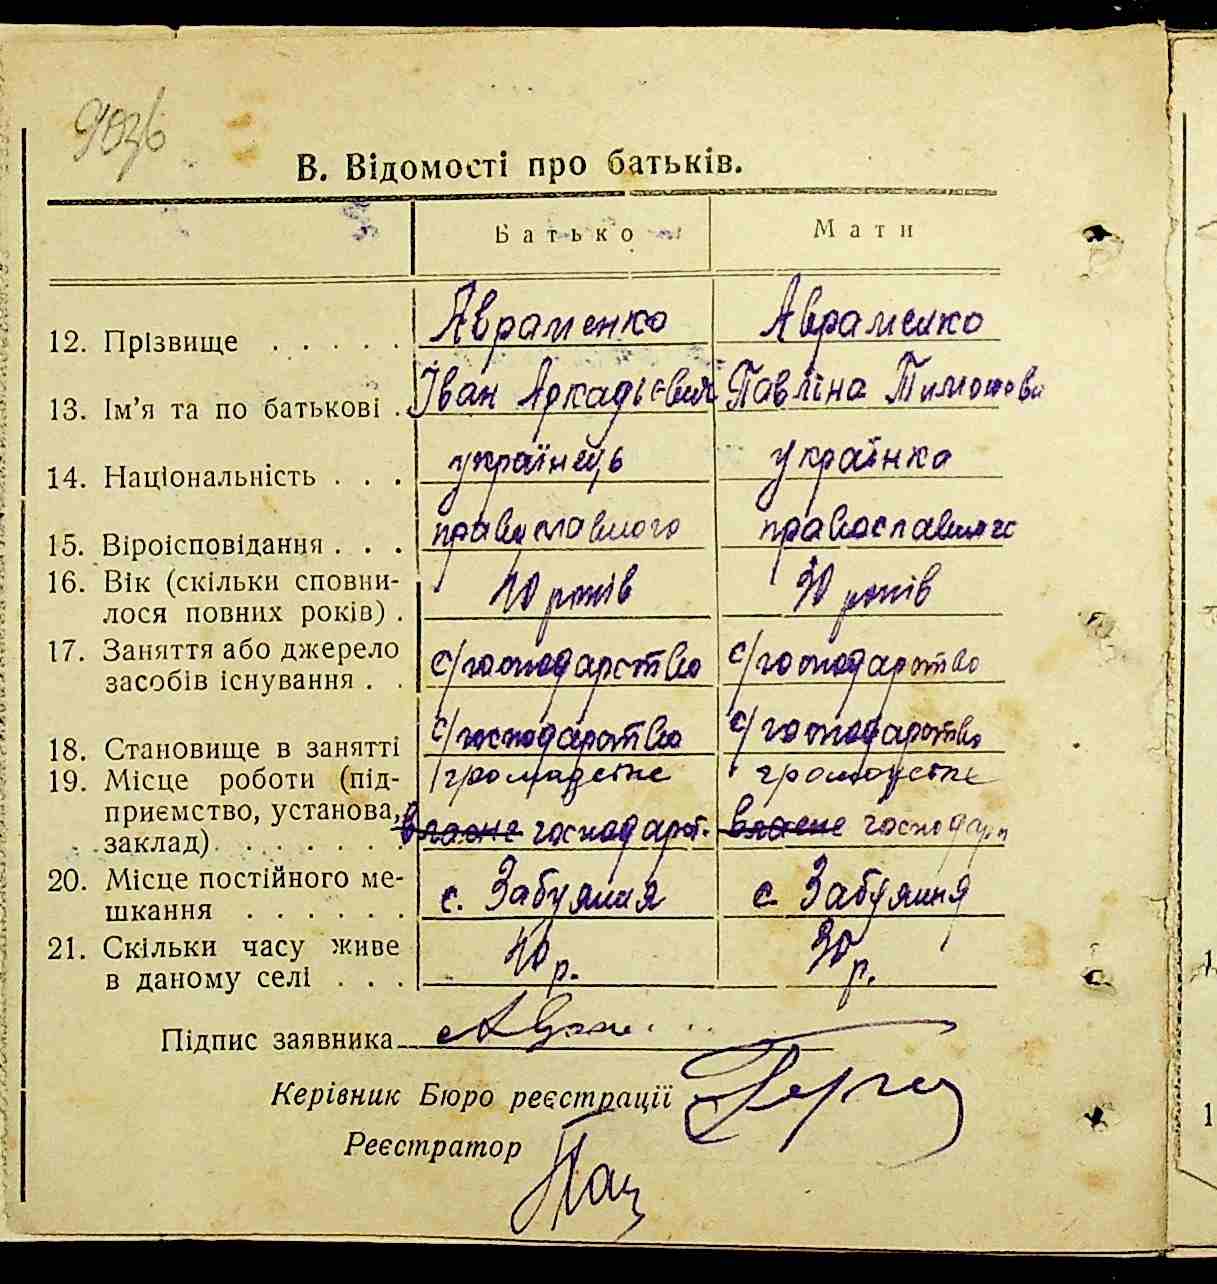 9036
В. Відомості про батьків.
Батько Мати
12. Прізвище . . . . . Авраменко Авраменко
13. Ім'я та по батькові . Іван Аркадієвич Павліна Тимофіова
14. Національність . . . українець українка
15. Віроісповідання . . . православного православного
16. Вік (скільки сповни-
лося повних років) . 40 років 30 років
17. Заняття або джерело
засобів існування . . с/господарство с/господарство
18. Становище в занятті с/господарство с/господарство
19. Місце роботи (під- громадське громадське
приємство, установа,
заклад) . . . . . . . власне господарст. власне господарст
20. Місце постійного ме-
шкання . . . . . . с. Забуяння с. Забуяння
21. Скільки часу живе
в даному селі . . . 40 р. 30 р.
Підпис заявника
Керівник Бюро реєстрації
Реєстратор